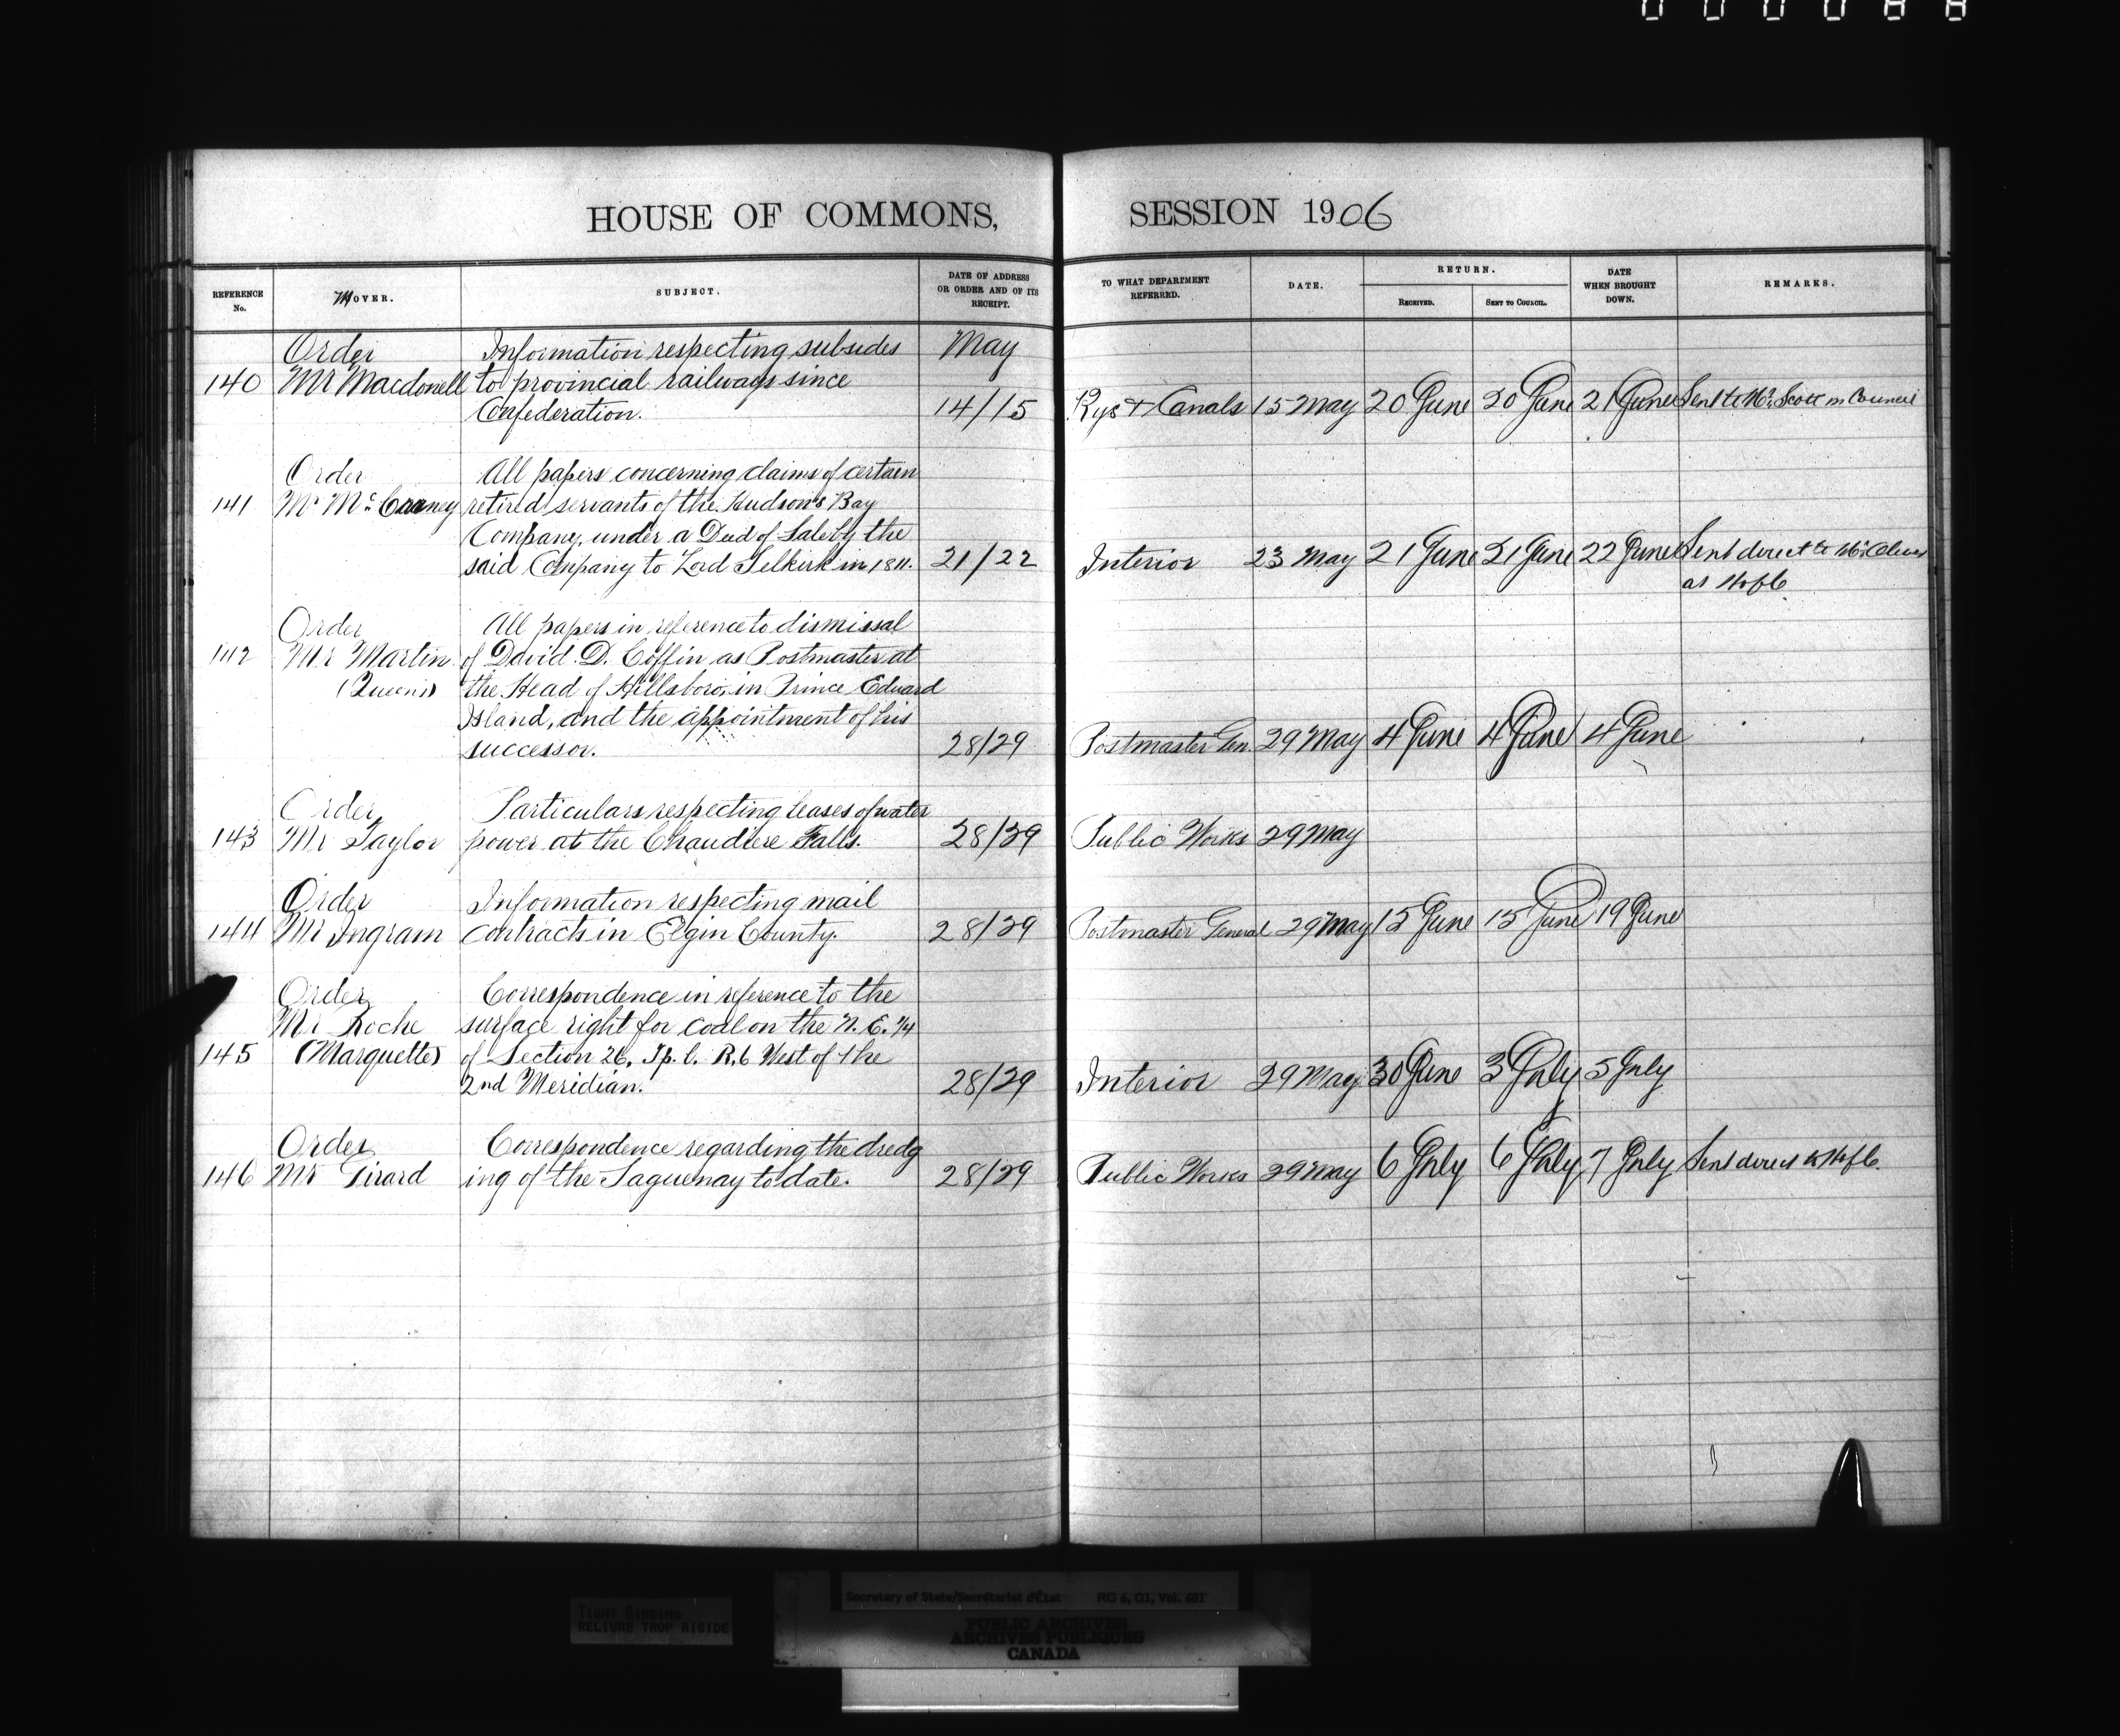 HOUSE OF COMMONS, SESSION 1906
REFERENCE No. MOVER. SUBJECT. DATE OF ADDRESS OR ORDER AND OF ITS RECEIPT. TO WHAT DEPARTMENT REFERRED. DATE. RETURN. RECEIVED. SENT TO COUNCIL. DATE WHEN BROUGHT DOWN. REMARKS.
Order Information respecting subsides May
140 Mr Macdonell to provincial railways since
Confederation. 14/15 Rys & Canals 15 May 20 June 20 June 21 June Sent to Mr Scott in Council
Order All papers concerning claims of certain
141 Mr McCarney retired servants of the Hudson's Bay
Company, under a Deed of Sale by the
said Company to Lord Selkirk in 1811. 21/22 Interior 23 May 21 June 21 June 22 June Sent direct to
at HofC
Order All papers in reference to dismissal
142 Mr Martin of David D. Coffin as Postmaster at
(Queen's) the Head of Hillsboro, in Prince Edward
Island, and the appointment of his
successor. 28/29 Postmaster Gen. 29 May 4 June 4 June 4 June
Order Particulars respecting leases of water
143 Mr Taylor power at the Chaudiere Falls. 28/29 Public Works 29 May
Order Information respecting mail
144 Mr Ingram contracts in Elgin County. 28/29 Postmaster General 29 May 15 June 15 June 19 June
Order Correspondence in reference to the
Mr Roche surface right for coal on the N. E. 1/4
145 (Marquette) of Section 26, Tp. 1. R. 6 West of the
2nd Meridian. 28/29 Interior 29 May 30 June 3 July 5 July
Order Correspondence regarding the dredg
146 Mr Girard ing of the Saguenay to date. 28/29 Public Works 29 May 6 July 6 July 7 July Sent direct to HofC.
TIGHT BINDING
RELIURE TROP RIGIDE
Secretary of State/Secrétariat d'État RG 6, G1, Vol. 681
PUBLIC ARCHIVES
ARCHIVES PUBLIQUES
CANADA